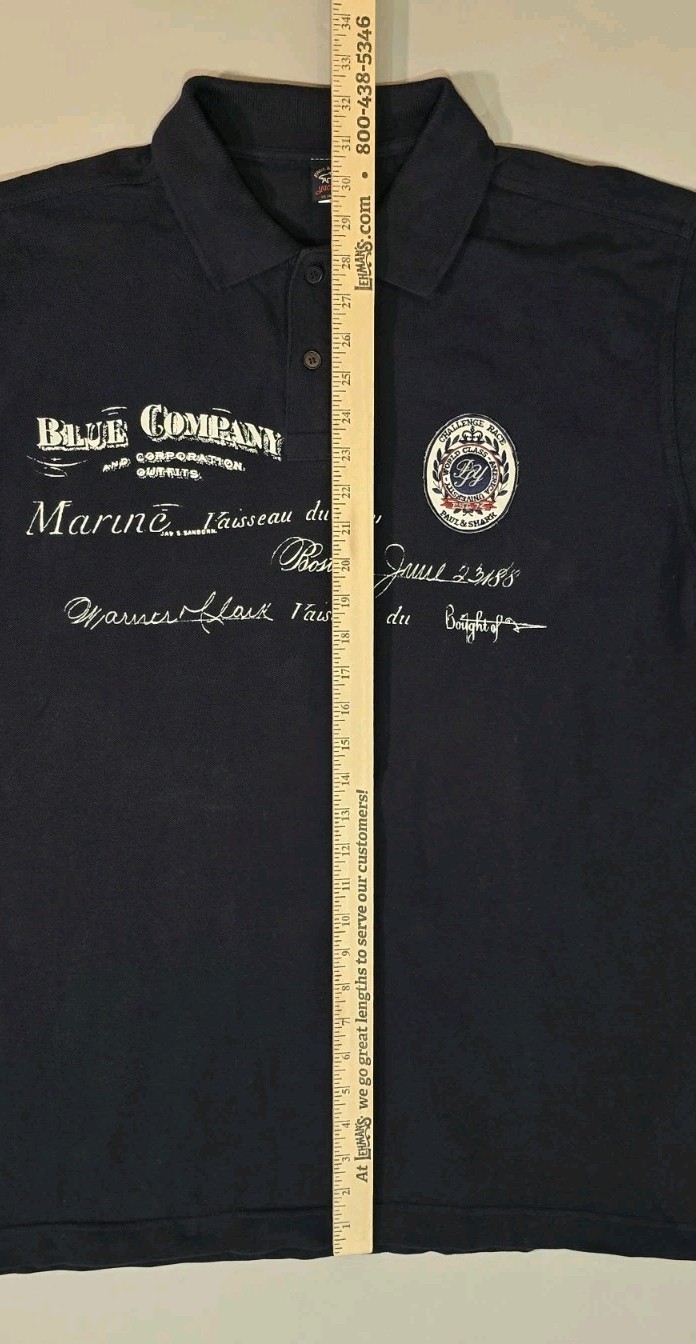 800-438-5346
LEHMAN'S.com
At LEHMAN'S we go great lengths to serve our customers!
34
33
32
31
30
29
28
27
26
25
24
23
22
21
20
19
18
17
16
15
14
13
12
11
10
9
8
7
6
5
4
3
2
1
BLUE COMPANY
AND CORPORATION
OUTFITS
Marine JAS S. SANBORN Vaisseau du
June 23
du Bought of
CHALLENGE RACE
WORLD CLASS
PAUL & SHARK